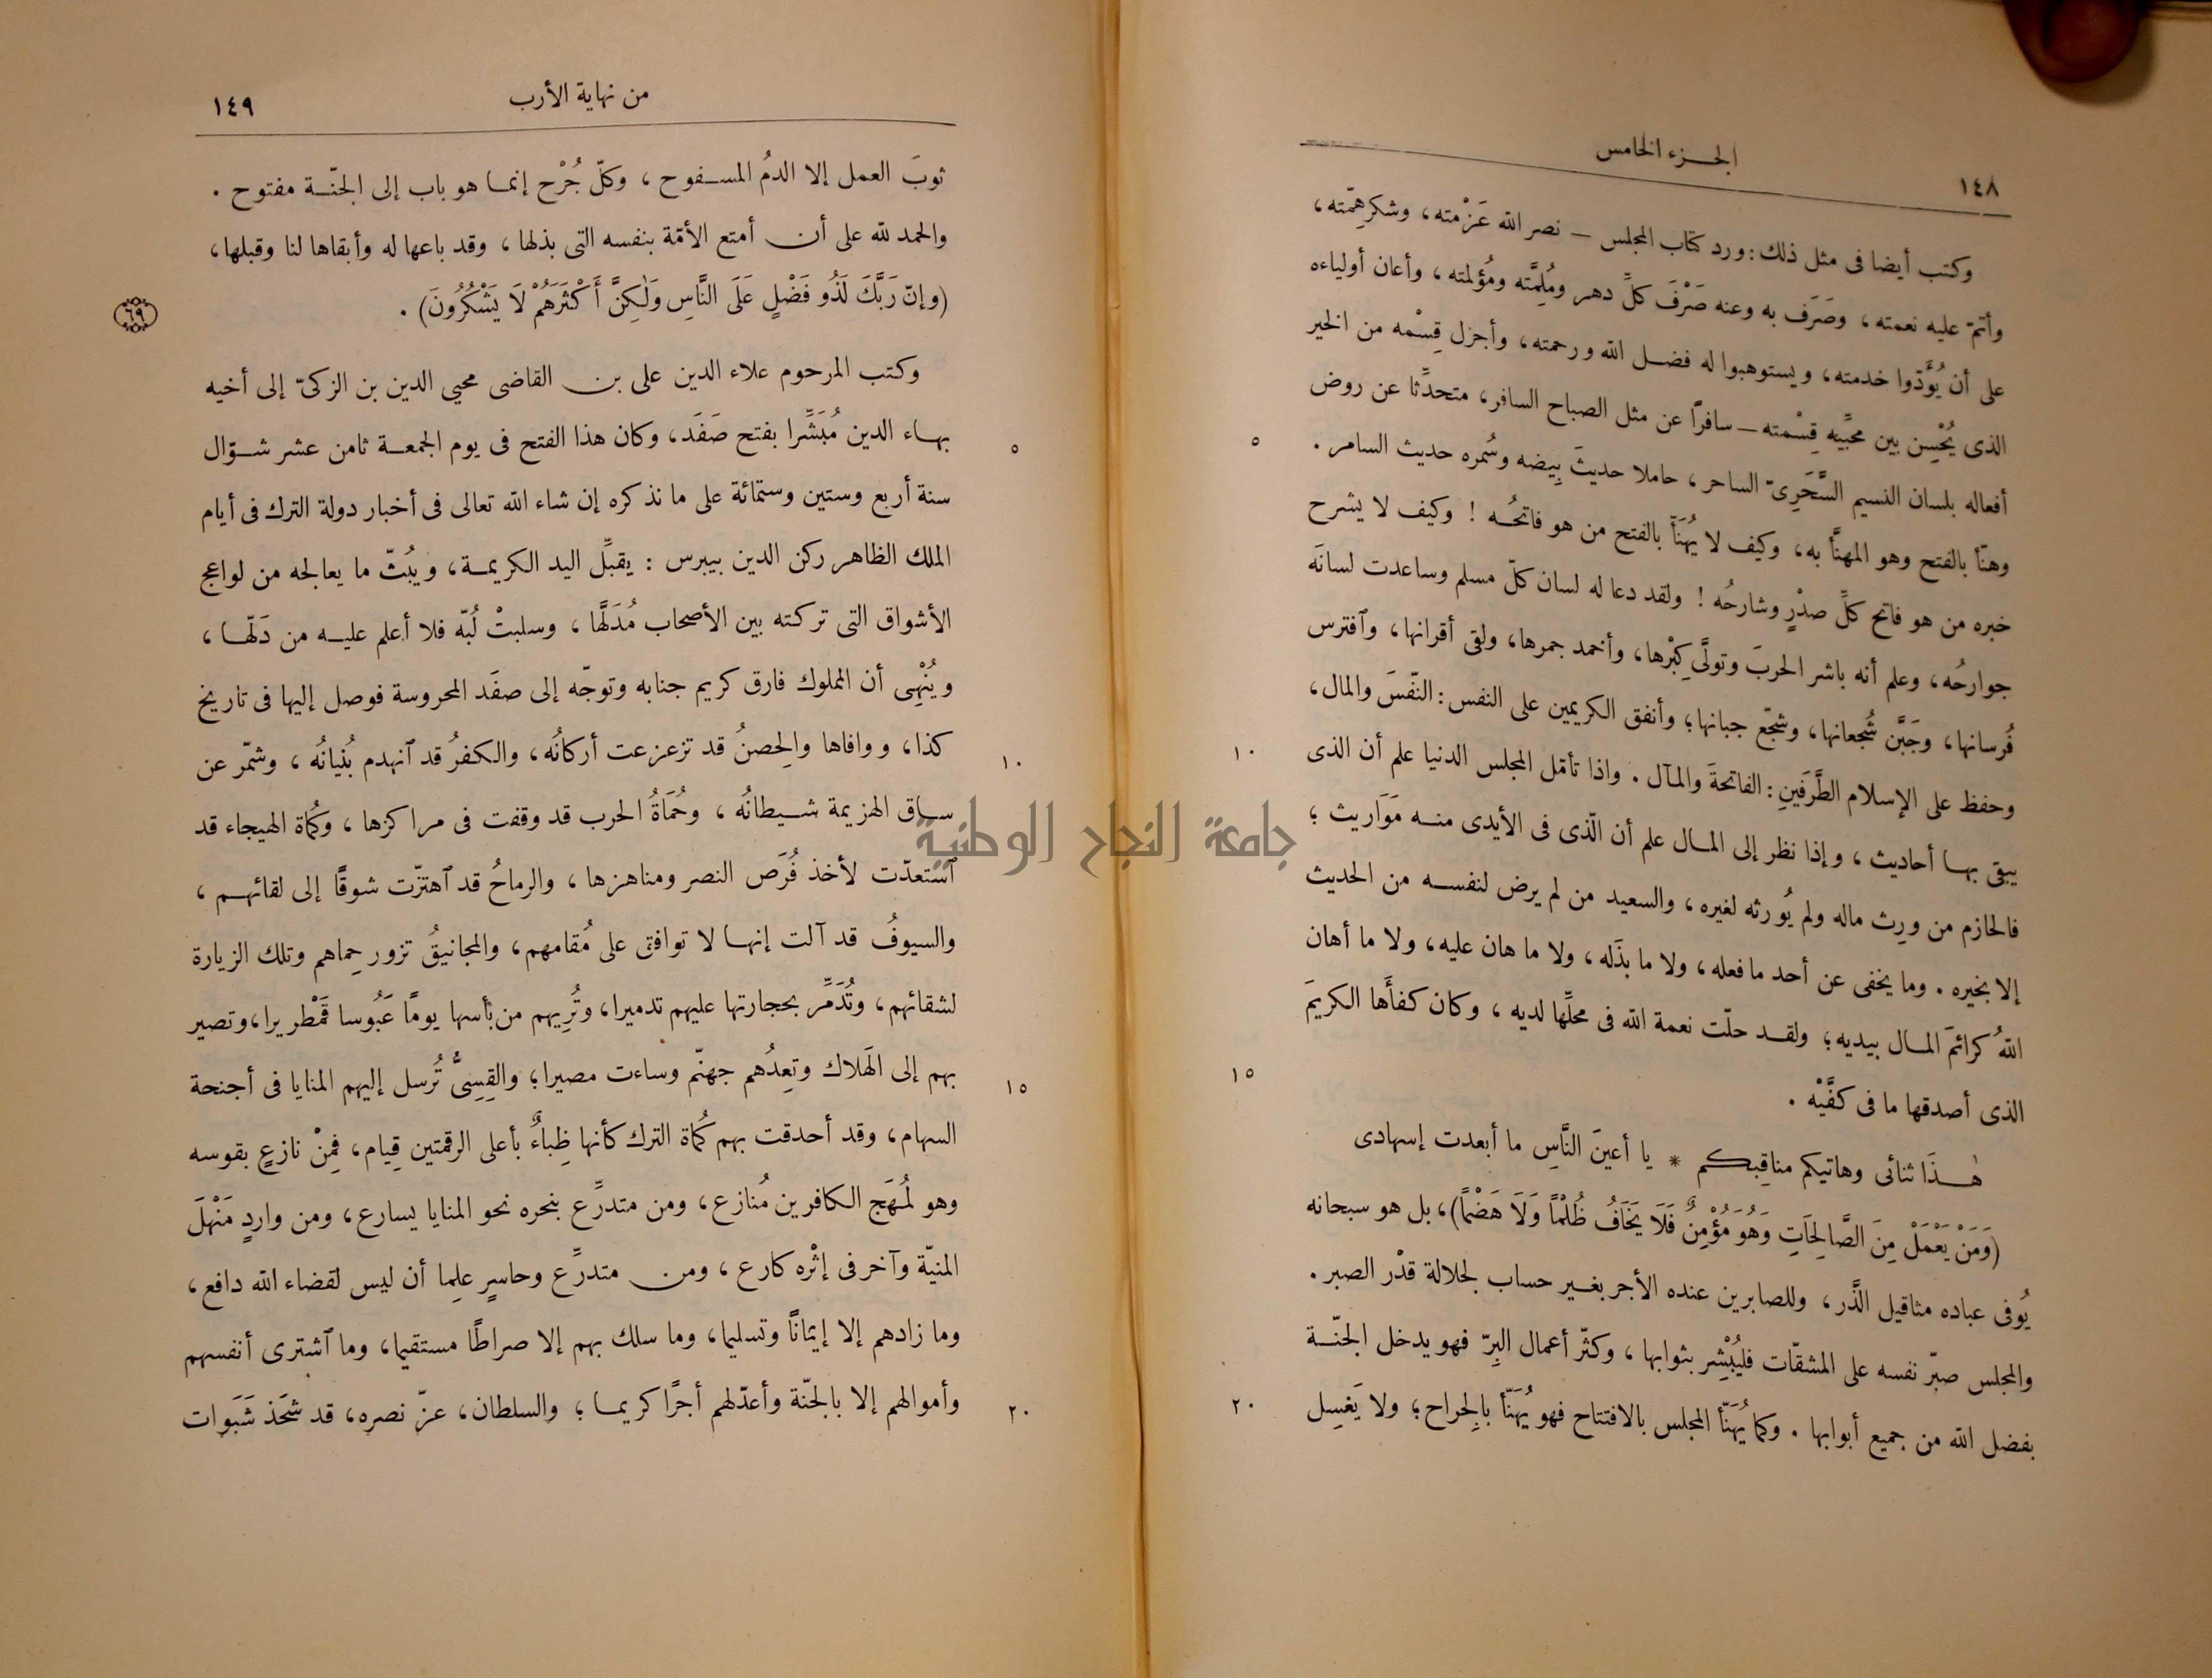 ١٤٨
الجـزء الخامس
وكتب أيضا فى مثل ذلك: ورد كتاب المجلس — نصر الله عَزْمته، وشكر هِمّته،
وأتمّ عليه نعمته، وصَرَف به وعنه صَرْفَ كلِّ دهر ومُلِمَّته ومُؤلمته، وأعان أولياءه
على أن يُؤدّوا خدمته، ويستوهبوا له فضـل الله ورحمته، وأجزل قِسْمه من الخير
الذى يُحْسِن بين محبِّيه قِسْمته — سافرًا عن مثل الصباح السافر، متحدِّثا عن روض
٥
أفعاله بلسان النسيم السَّحَرِىّ الساحر، حاملا حديثَ بِيضه وسُمره حديث السامر.
وهنّأ بالفتح وهو المهنَّأ به، وكيف لا يُهَنَّأ بالفتح من هو فاتحُـه! وكيف لا يشرح
خبره من هو فاتح كلِّ صدْرٍ وشارحُه! ولقد دعا له لسان كلّ مسلم وساعدت لسانَه
جوارحُه، وعلم أنه باشر الحربَ وتولَّى كِبْرها، وأخمد جمرها، ولقى أقرانها، وآفترس
فُرسانها، وجَبَّن شُجعانها، وشجّع جبانها؛ وأنفق الكريمين على النفس: النّفسَ والمال،
وحفظ على الإسلام الطَّرَفَينِ: الفاتحةَ والمآل. واذا تأمّل المجلس الدنيا علم أن الذى
١٠
يبقى بهـا أحاديث، وإذا نظر إلى المـال علم أن الّذى فى الأيدى منـه مَوَاريث؛
فالحازم من ورِث ماله ولم يُورثه لغيره، والسعيد من لم يرض لنفسـه من الحديث
إلا بخيره. وما يخفى عن أحد ما فعله، ولا ما بذَله، ولا ما هان عليه، ولا ما أهان
اللهُ كرائمَ المـال بيديه؛ ولقـد حلّت نعمة الله فى محلِّها لديه، وكان كفأَها الكريمَ
الذى أصدقها ما فى كفَّيْه.
١٥
هٰـذَا ثنائى وهاتيكم مناقِبكم * يا أعينَ النَّاسِ ما أبعدت إسهادى
(وَمَنْ يَعْمَلْ مِنَ الصَّالِحَاتِ وَهُوَ مُؤْمِنٌ فَلَا يَخَافُ ظُلْمًا وَلَا هَضْمًا)، بل هو سبحانه
يُوفى عباده مثاقيل الذَّر، وللصابرين عنده الأجر بغـير حساب لجلالة قدْر الصبر.
والمجلس صبّر نفسه على المشقّات فليُبْشِر بثوابها، وكثّر أعمال البِرّ فهو يدخل الجنّـة
بفضل الله من جميع أبوابها. وكما يُهَنّأ المجلس بالافتتاح فهو يُهَنّأ بالِجراح؛ ولا يَغسِل
٢٠
من نهاية الأرب
١٤٩
ثوبَ العمل إلا الدمُ المسـفوح، وكلّ جُرْح إنمـا هو باب إلى الجنّـة مفتوح.
والحمد لله على أن أمتع الأمّة بنفسه التى بذلها، وقد باعها له وأبقاها لنا وقبلها،
(وإنّ رَبَّكَ لَذُو فَضْلٍ عَلَى النَّاسِ وَلَٰكِنَّ أَكْثَرَهُمْ لَا يَشْكُرُونَ).
٦٩
وكتب المرحوم علاء الدين على بن القاضى محيي الدين بن الزكىّ إلى أخيه
بهـاء الدين مُبَشِّرا بفتح صَفَد، وكان هذا الفتح فى يوم الجمعـة ثامن عشر شـوّال
٥
سنة أربع وستين وستمائة على ما نذكره إن شاء الله تعالى فى أخبار دولة الترك فى أيام
الملك الظاهر ركن الدين بيبرس: يقبِّل اليد الكريمـة، ويُبثّ ما يعالجه من لواعج
الأشواق التى تركته بين الأصحاب مُدَلَّها، وسلبتْ لُبّه فلا أعلم عليـه من دَلّهـا،
ويُنْهِى أن المملوك فارق كريم جنابه وتوجّه إلى صفَد المحروسة فوصل إليها فى تاريخ
كذا، ووافاها والِحصنُ قد تزعزعت أركانُه، والكفرُ قد آنهدم بُنيانُه، وشمّر عن
١٠
سـاق الهزيمة شـيطانُه، وحُمَاةُ الحرب قد وقفت فى مراكزها، وكُماة الهيجاء قد
آستعدّت لأخذ فُرَص النصر ومناهزها، والرماحُ قد آهتزّت شوقًا إلى لقائهـم،
والسيوفُ قد آلت إنهـا لا توافق على مُقامهم، والمجانيقُ تزور حِماهم وتلك الزيارة
لشقائهم، وتُدَمِّر بحجارتها عليهم تدميرا، وتُرِيهم من بأسها يومًا عَبُوسا قَمْطريرا، وتصير
بهم إلى الهَلاك وتعِدُهم جهنّم وساءت مصيرا؛ والقِسِىُّ تُرسل إليهم المنايا فى أجنحة
١٥
السهام، وقد أحدقت بهم كُماة الترك كأنها ظِباءٌ بأعلى الرقمتين قِيام، فِمنْ نازعٍ بقوسه
وهو لُمهَج الكافرين مُنازع، ومن متدرِّع بنحره نحو المنايا يسارع، ومن واردٍ مَنْهلَ
المنيّة وآخر فى إثْره كارع، ومن متدرِّع وحاسرٍ علِما أن ليس لقضاء الله دافع،
وما زادهم إلا إيمانًا وتسليما، وما سلك بهم إلا صراطًا مستقيما، وما آشترى أنفسهم
وأموالهم إلا بالجنّة وأعدّ لهم أجرًا كريمـا؛ والسلطان، عزّ نصره، قد شحَذ شَبَوات
٢٠
جامعة النجاح الوطنية